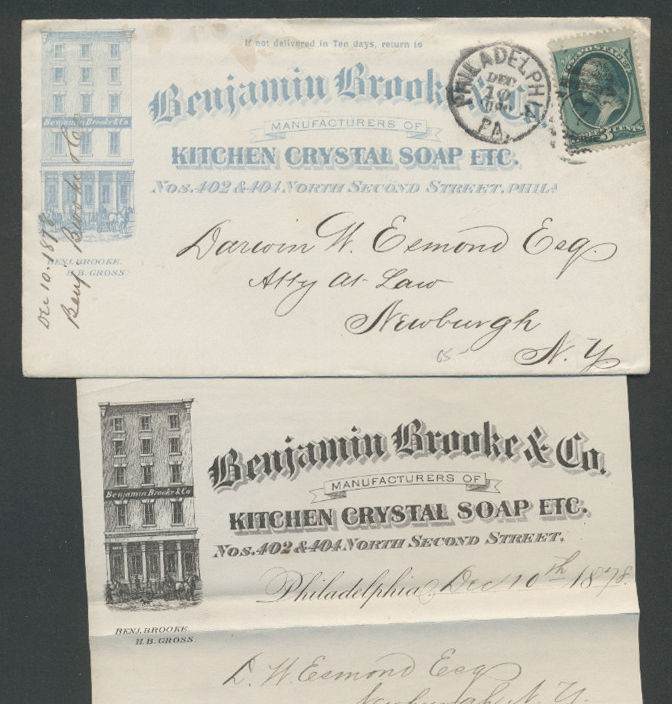 If not delivered in Ten days, return to
Benjamin Brooke & Co.
MANUFACTURERS OF
KITCHEN CRYSTAL SOAP ETC.
Nos. 402 & 404 North Second Street, Phila
Benjamin Brooke & Co
BENJ. BROOKE.
H. B. GROSS.
Dec 10. 1878
Benj Brooke & Co
PHILADELPHIA
DEC
10
PA.
POSTAGE
3 CENTS
Darwin W. Esmond Esq.
Atty At Law
Newburgh
N. Y
65-
Benjamin Brooke & Co.
MANUFACTURERS OF
KITCHEN CRYSTAL SOAP ETC.
Nos. 402 & 404 North Second Street.
Benjamin Brooke & Co
BENJ. BROOKE.
H. B. GROSS.
Philadelphia Dec 10th 1878
D. W. Esmond Esq
Newburgh N. Y.